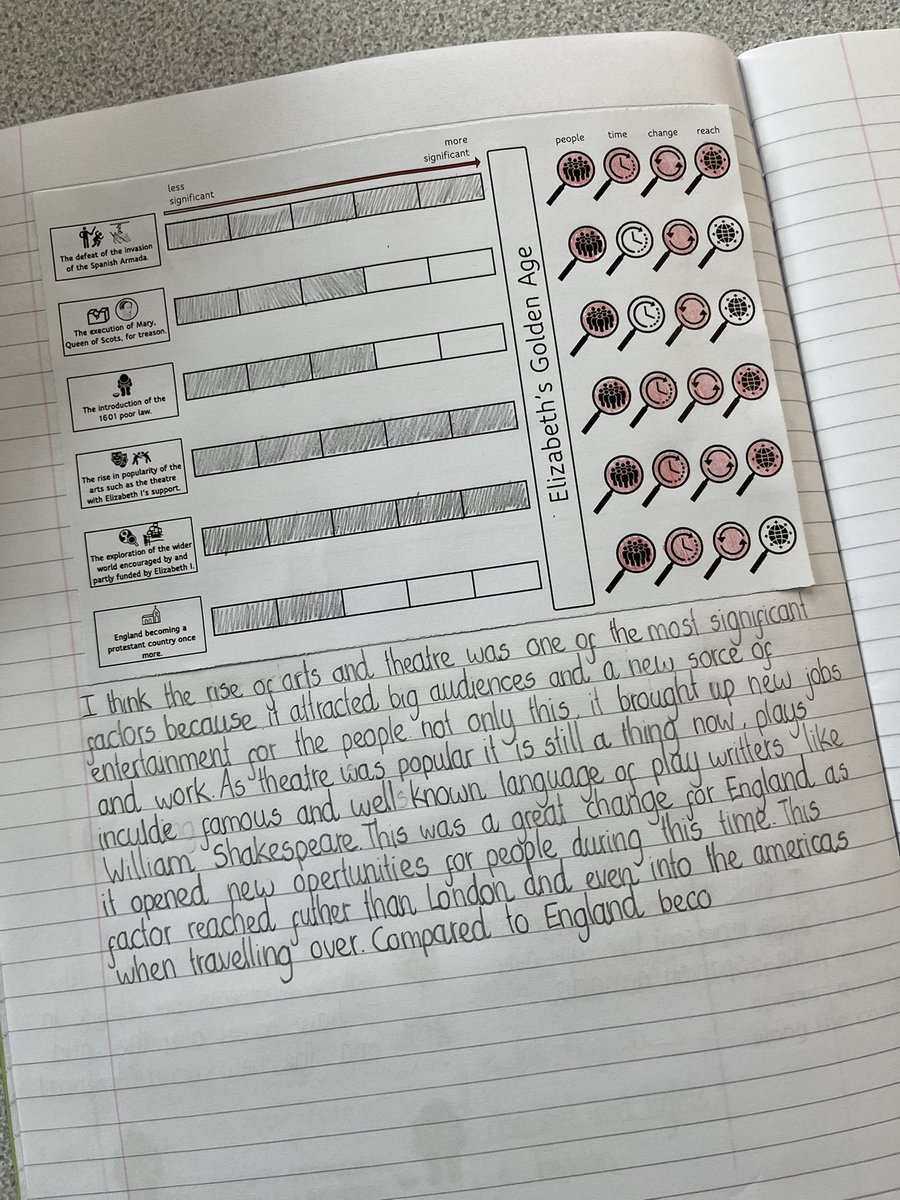 people time change reach
more
significant
less
significant
The defeat of the invasion
of the Spanish Armada.
The execution of Mary,
Queen of Scots, for treason.
The introduction of the
1601 poor law.
The rise in popularity of the
arts such as the theatre
with Elizabeth I's support.
The exploration of the wider
world encouraged by and
partly funded by Elizabeth I.
England becoming a
protestant country once
more.
Elizabeth's Golden Age
I think the rise of arts and theatre was one of the most significant
factors because it attracted big audiences and a new sorce of
entertainment for the people not only this, it brought up new jobs
and work. As theatre was popular it is still a thing now, plays
inculde famous and well known language of play writters like
William Shakespeare. This was a great change for England as
it opened new opertunities for people during this time. This
factor reached futher than London and even into the americas
when travelling over. Compared to England beco